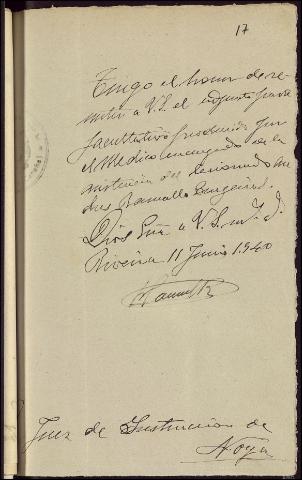 17
Tengo el honor de re-
mitir a V.S. el adjunto parte
facultativo producido por
el Médico encargado de la
asistencia del lesionado An-
drés
Dios gue a V.S. m. a.
Riveira 11 Junio 1940
Juez de Instrucción de
Noya